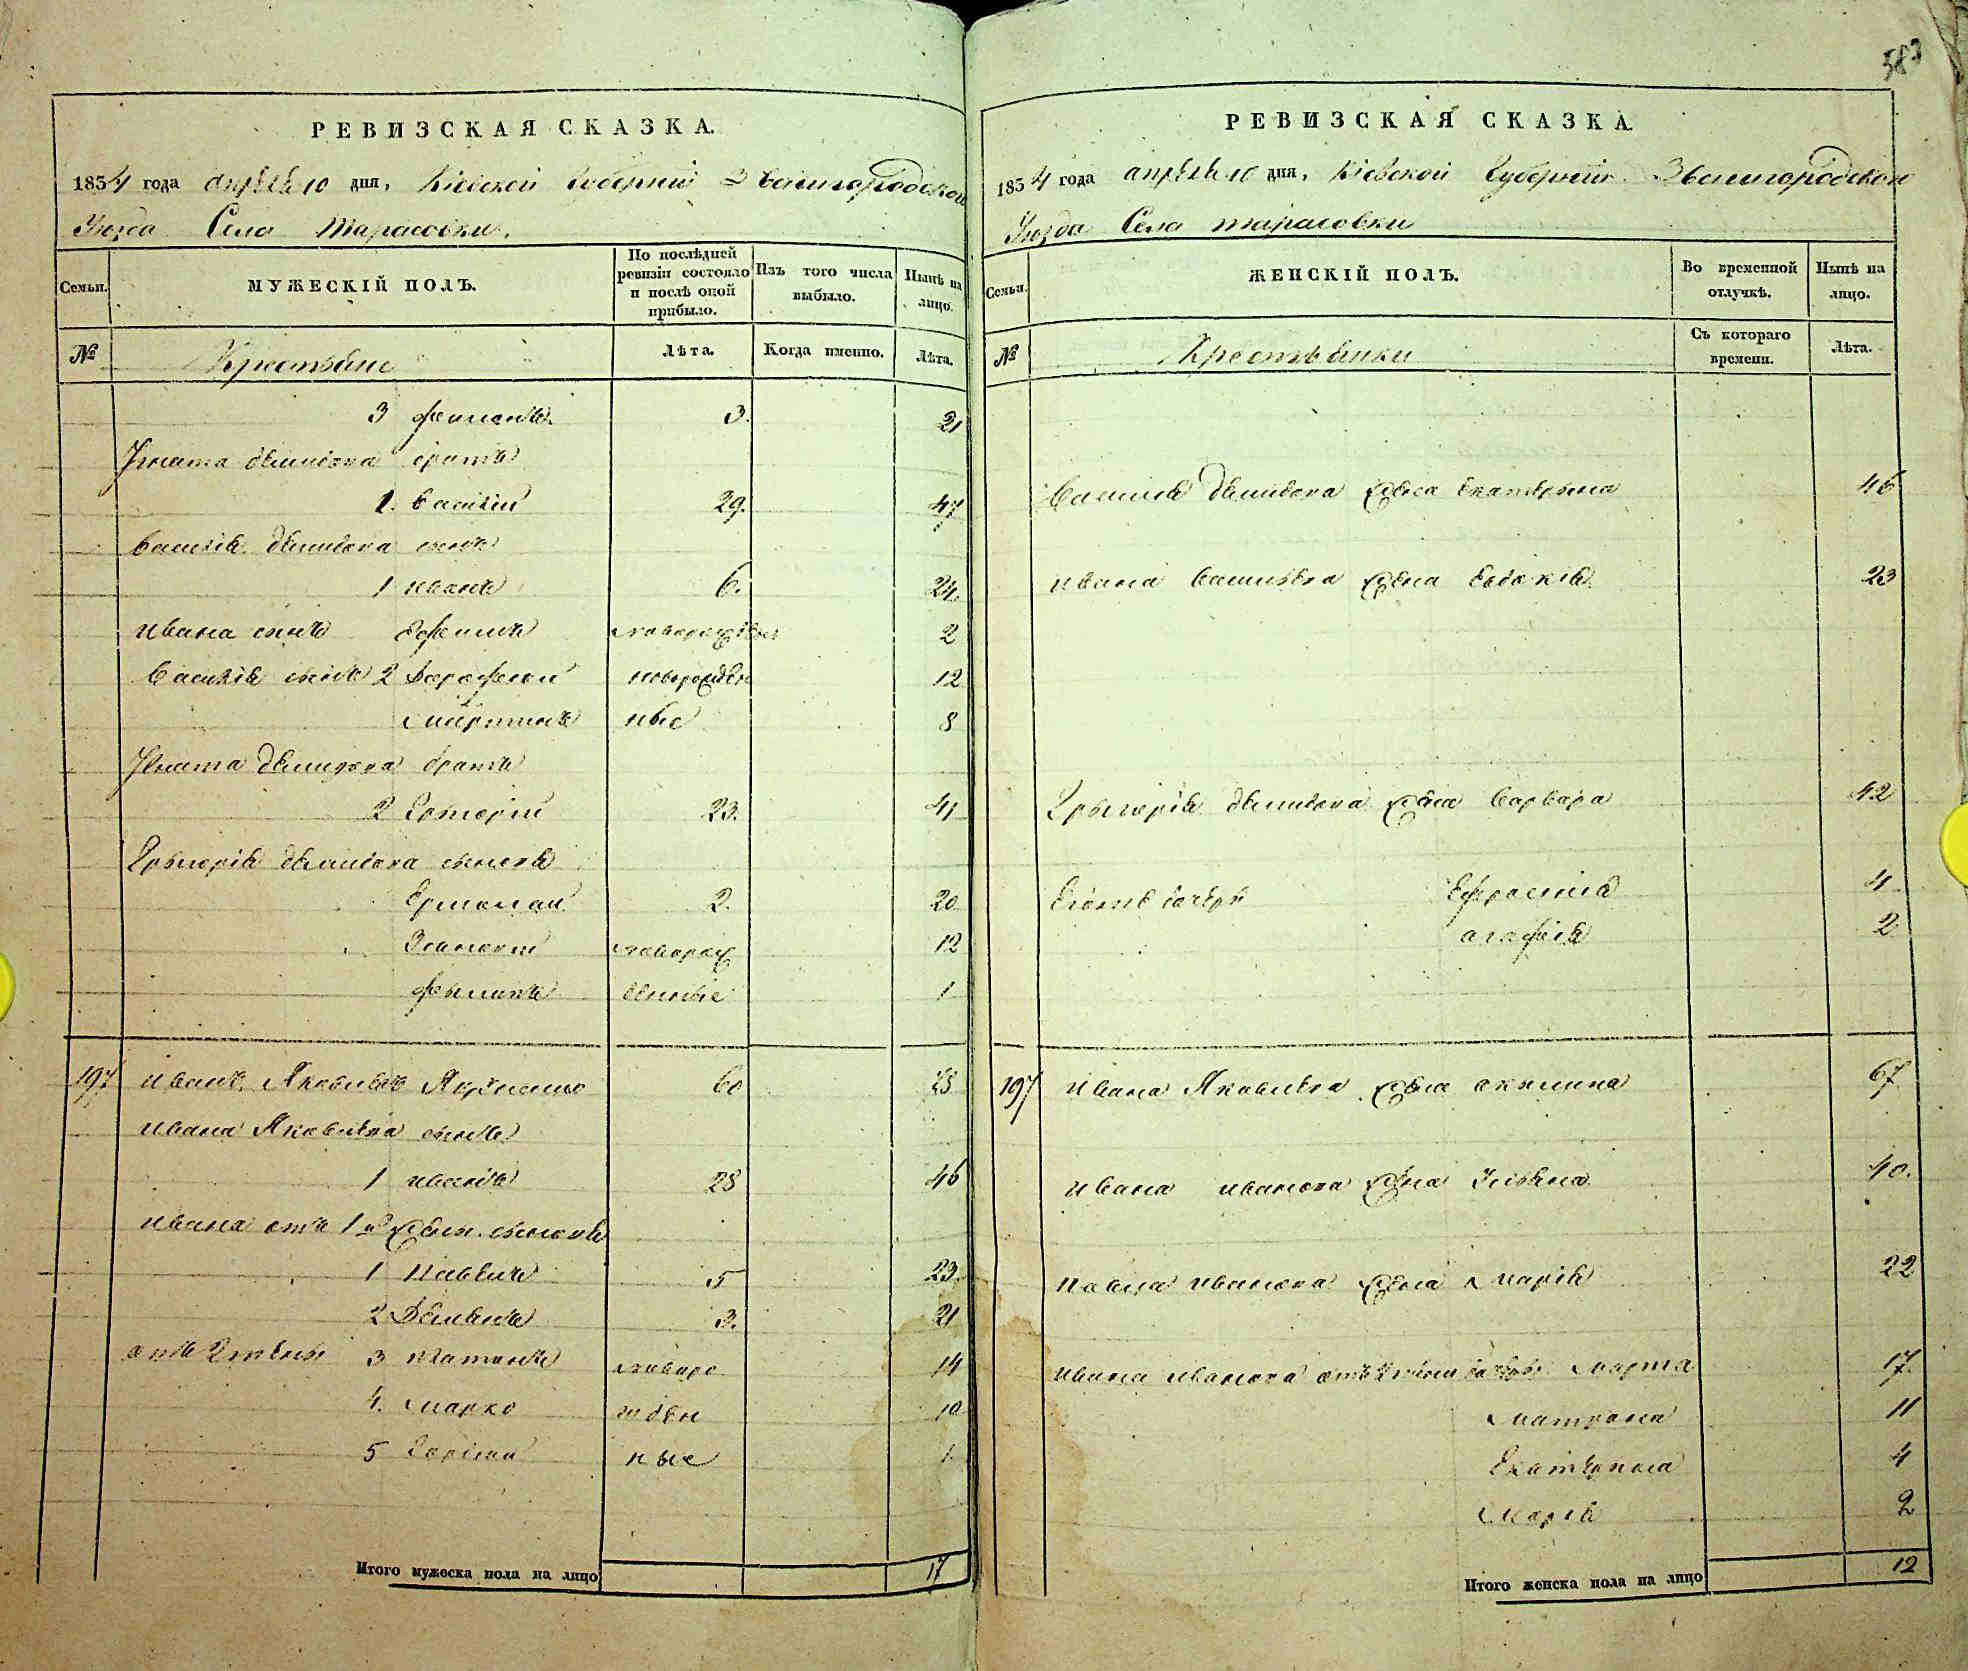 583
РЕВИЗСКАЯ СКАЗКА.
1854 года апреля 10 дня, Кіевской Губерніи Звенигородской
Уезда Села Тарасовки.
Семьи.
МУЖЕСКІЙ ПОЛЪ.
По послѣдней ревизіи состояло и послѣ оной прибыло.
Изъ того числа выбыло.
Нынѣ на лицо.
№
Крестьяне
Лѣта.
Когда именно.
Лѣта.
3 3. 21
Игната Демидова братъ
1. Василій 29. 47
Василія Демидова сынъ
1 Иванъ 6. 24.
Ивана сынъ Ефимъ новорожден 2
Василія сынъ 2 Дорофей новорожден 12
Мартинъ ные 8
Игната Демидова братъ
2 Григорій 23. 41
Грыгорія Демидова сыновя
Ермолай 2. 20
новорож 12
Филипъ денные 1
197 Иванъ Яковлевъ 60
Ивана Яковлева сынъ
1 Иванъ 28 46
Ивана отъ 1й жены сыновя
1 Павелъ 5 23.
2 Демянъ 3. 21
отъ 2й жены 3 Платонъ новоро 14
4. Марко жден 10
5 ные 1
Итого мужеска пола на лицо 17
РЕВИЗСКАЯ СКАЗКА.
1854 года апреля 10 дня, Кіевской Губерніи Звенигородской
Уезда Села Тарасовки
Семьи.
ЖЕНСКІЙ ПОЛЪ.
Во временной отлучкѣ.
Нынѣ на лицо.
№
Крестьянки
Съ котораго времени.
Лѣта.
Василія Демидова жена Екатерына 46
Ивана Василева жена Евдокія 23
Грыгорія Демидова жена Варвара 42
Егоже дочери Ефросинія 4
Агафія 2
197 Ивана Яковлева жена Акилина 67
Ивана Иванова жена Уліяна 40.
Павла Иванова жена Марія 22
Ивана Иванова отъ 2 жены дочеры Марта 17.
Матрона 11
Екатерина 4
Марія 2
Итого женска пола на лицо 12